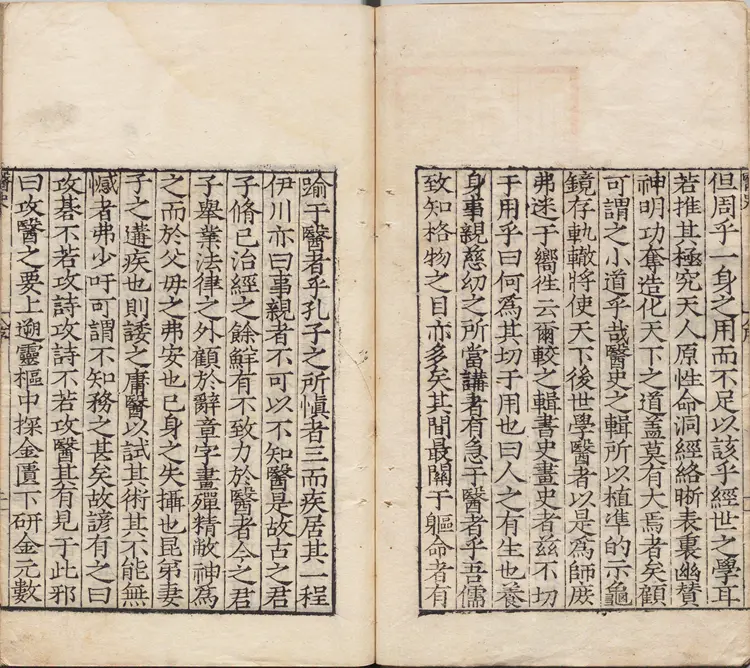 但周乎一身之用而不足以該乎經世之學耳
若推其極究天人原性命洞經絡晰表裏幽贊
神明功奪造化天下之道盖莫有大焉者矣顧
可謂之小道乎哉醫史之輯所以植準的示龜
鏡存軌轍將使天下後世學醫者以是爲師庶
弗迷于嚮徃云爾較之輯書史畫史者兹不切
于用乎曰何爲其切于用也曰人之有生也養
身事親慈幼之所當講者有急于醫者乎吾儒
致知格物之目亦多矣其間最關于軀命者有
踰于醫者乎孔子之所愼者三而疾居其一程
伊川亦曰事親者不可以不知醫是故古之君
子脩己治經之餘鮮有不致力於醫者今之君
子舉業法律之外顧於辭章字畫殫精敝神爲
之而於父母之弗安也已身之失攝也昆弟妻
子之遘疾也則諉之庸醫以試其術其不能無
憾者弗少吁可謂不知務之甚矣故諺有之曰
攻碁不若攻詩攻詩不若攻醫其有見于此邪
曰攻醫之要上遡靈樞中探金匱下研金元數